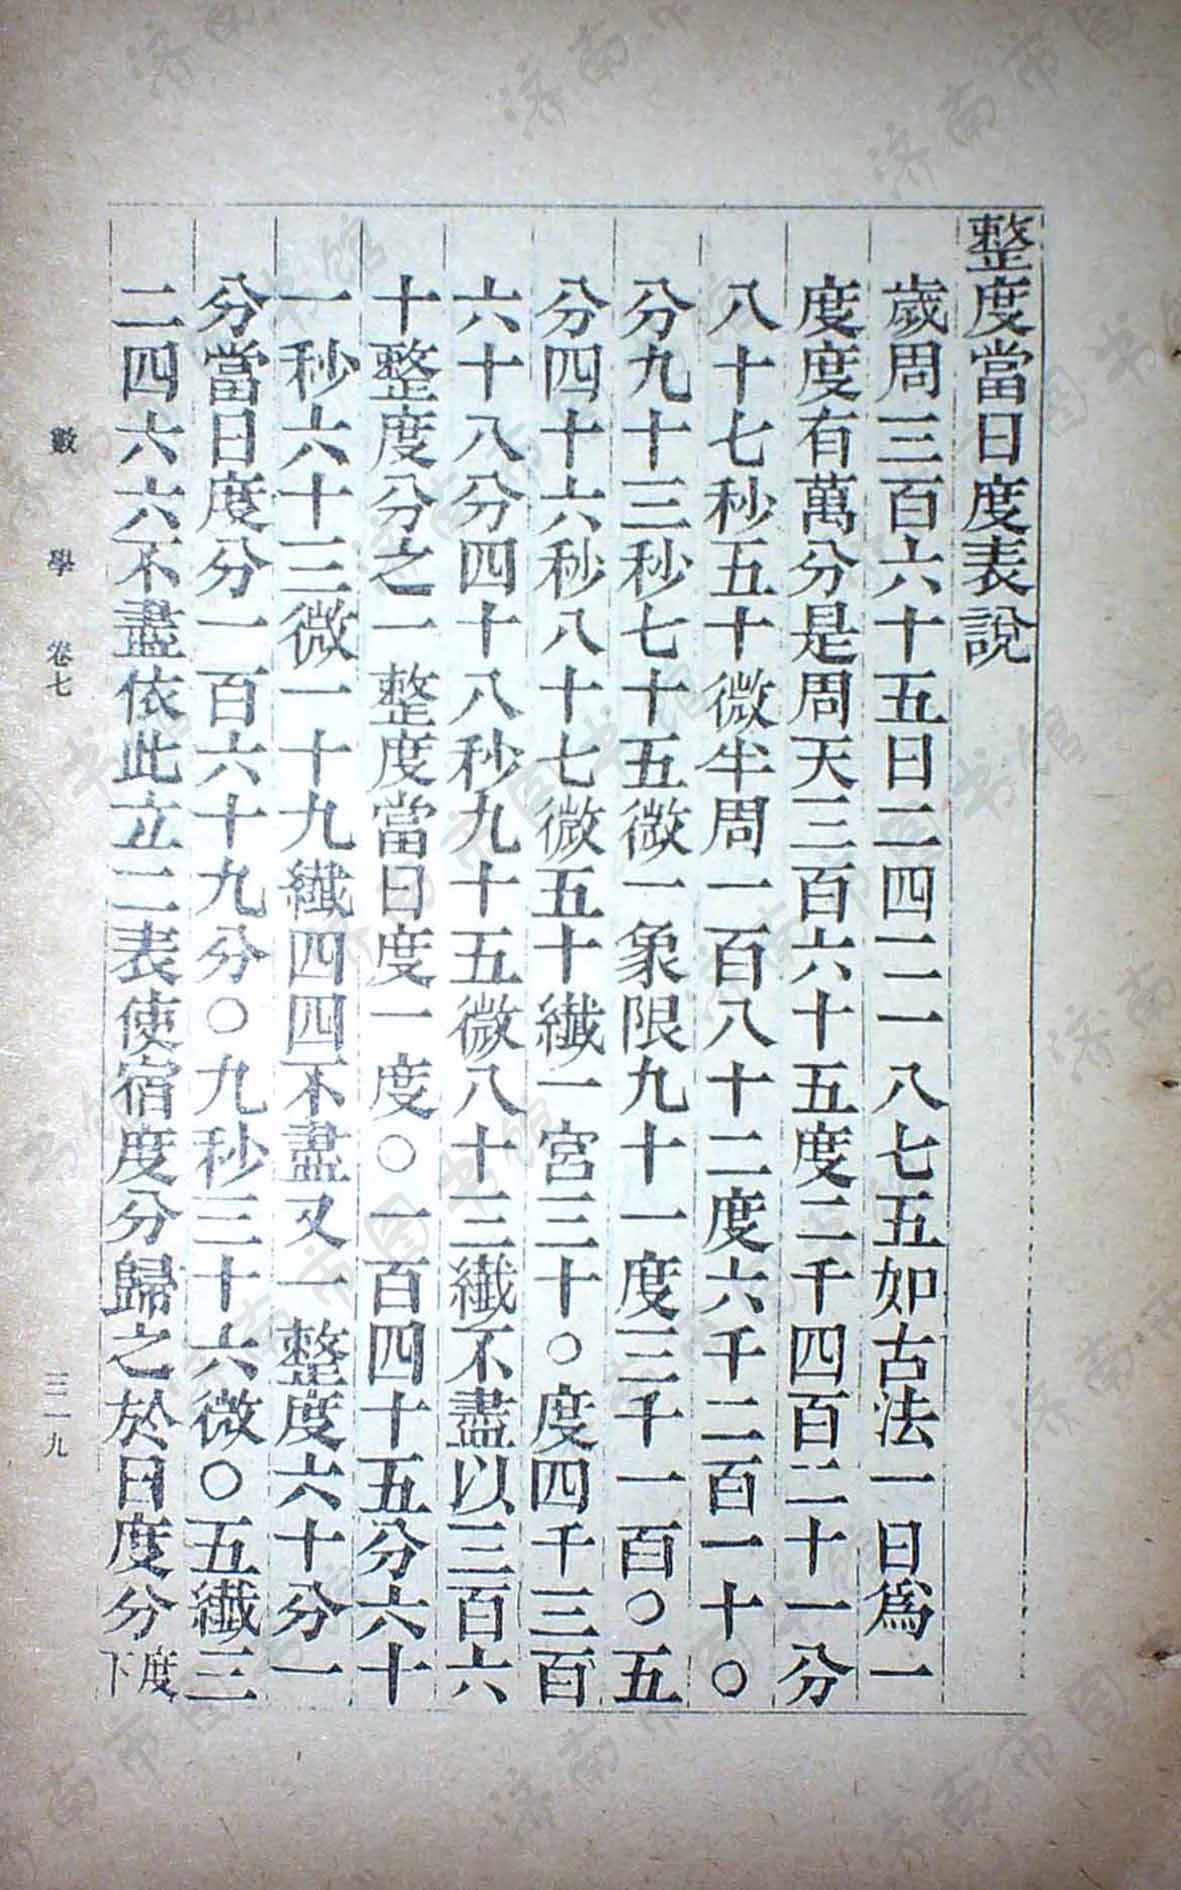 整度當日度表說
歲周三百六十五日二四二一八七五如古法一日爲一
度度有萬分是周天三百六十五度二千四百二十一分
八十七秒五十微半周一百八十二度六千二百一十〇
分九十三秒七十五微一象限九十一度三千一百〇五
分四十六秒八十七微五十纖一宮三十〇度四千三百
六十八分四十八秒九十五微八十三纖不盡以三百六
十整度分之一整度當日度一度〇一百四十五分六十
一秒六十三微一十九纖四四不盡又一整度六十分一
分當日度分一百六十九分〇九秒三十六微〇五纖三
二四六六不盡依此立二表使宿度分歸之於日度分度下
數學 卷七 三一九
济南市图书馆